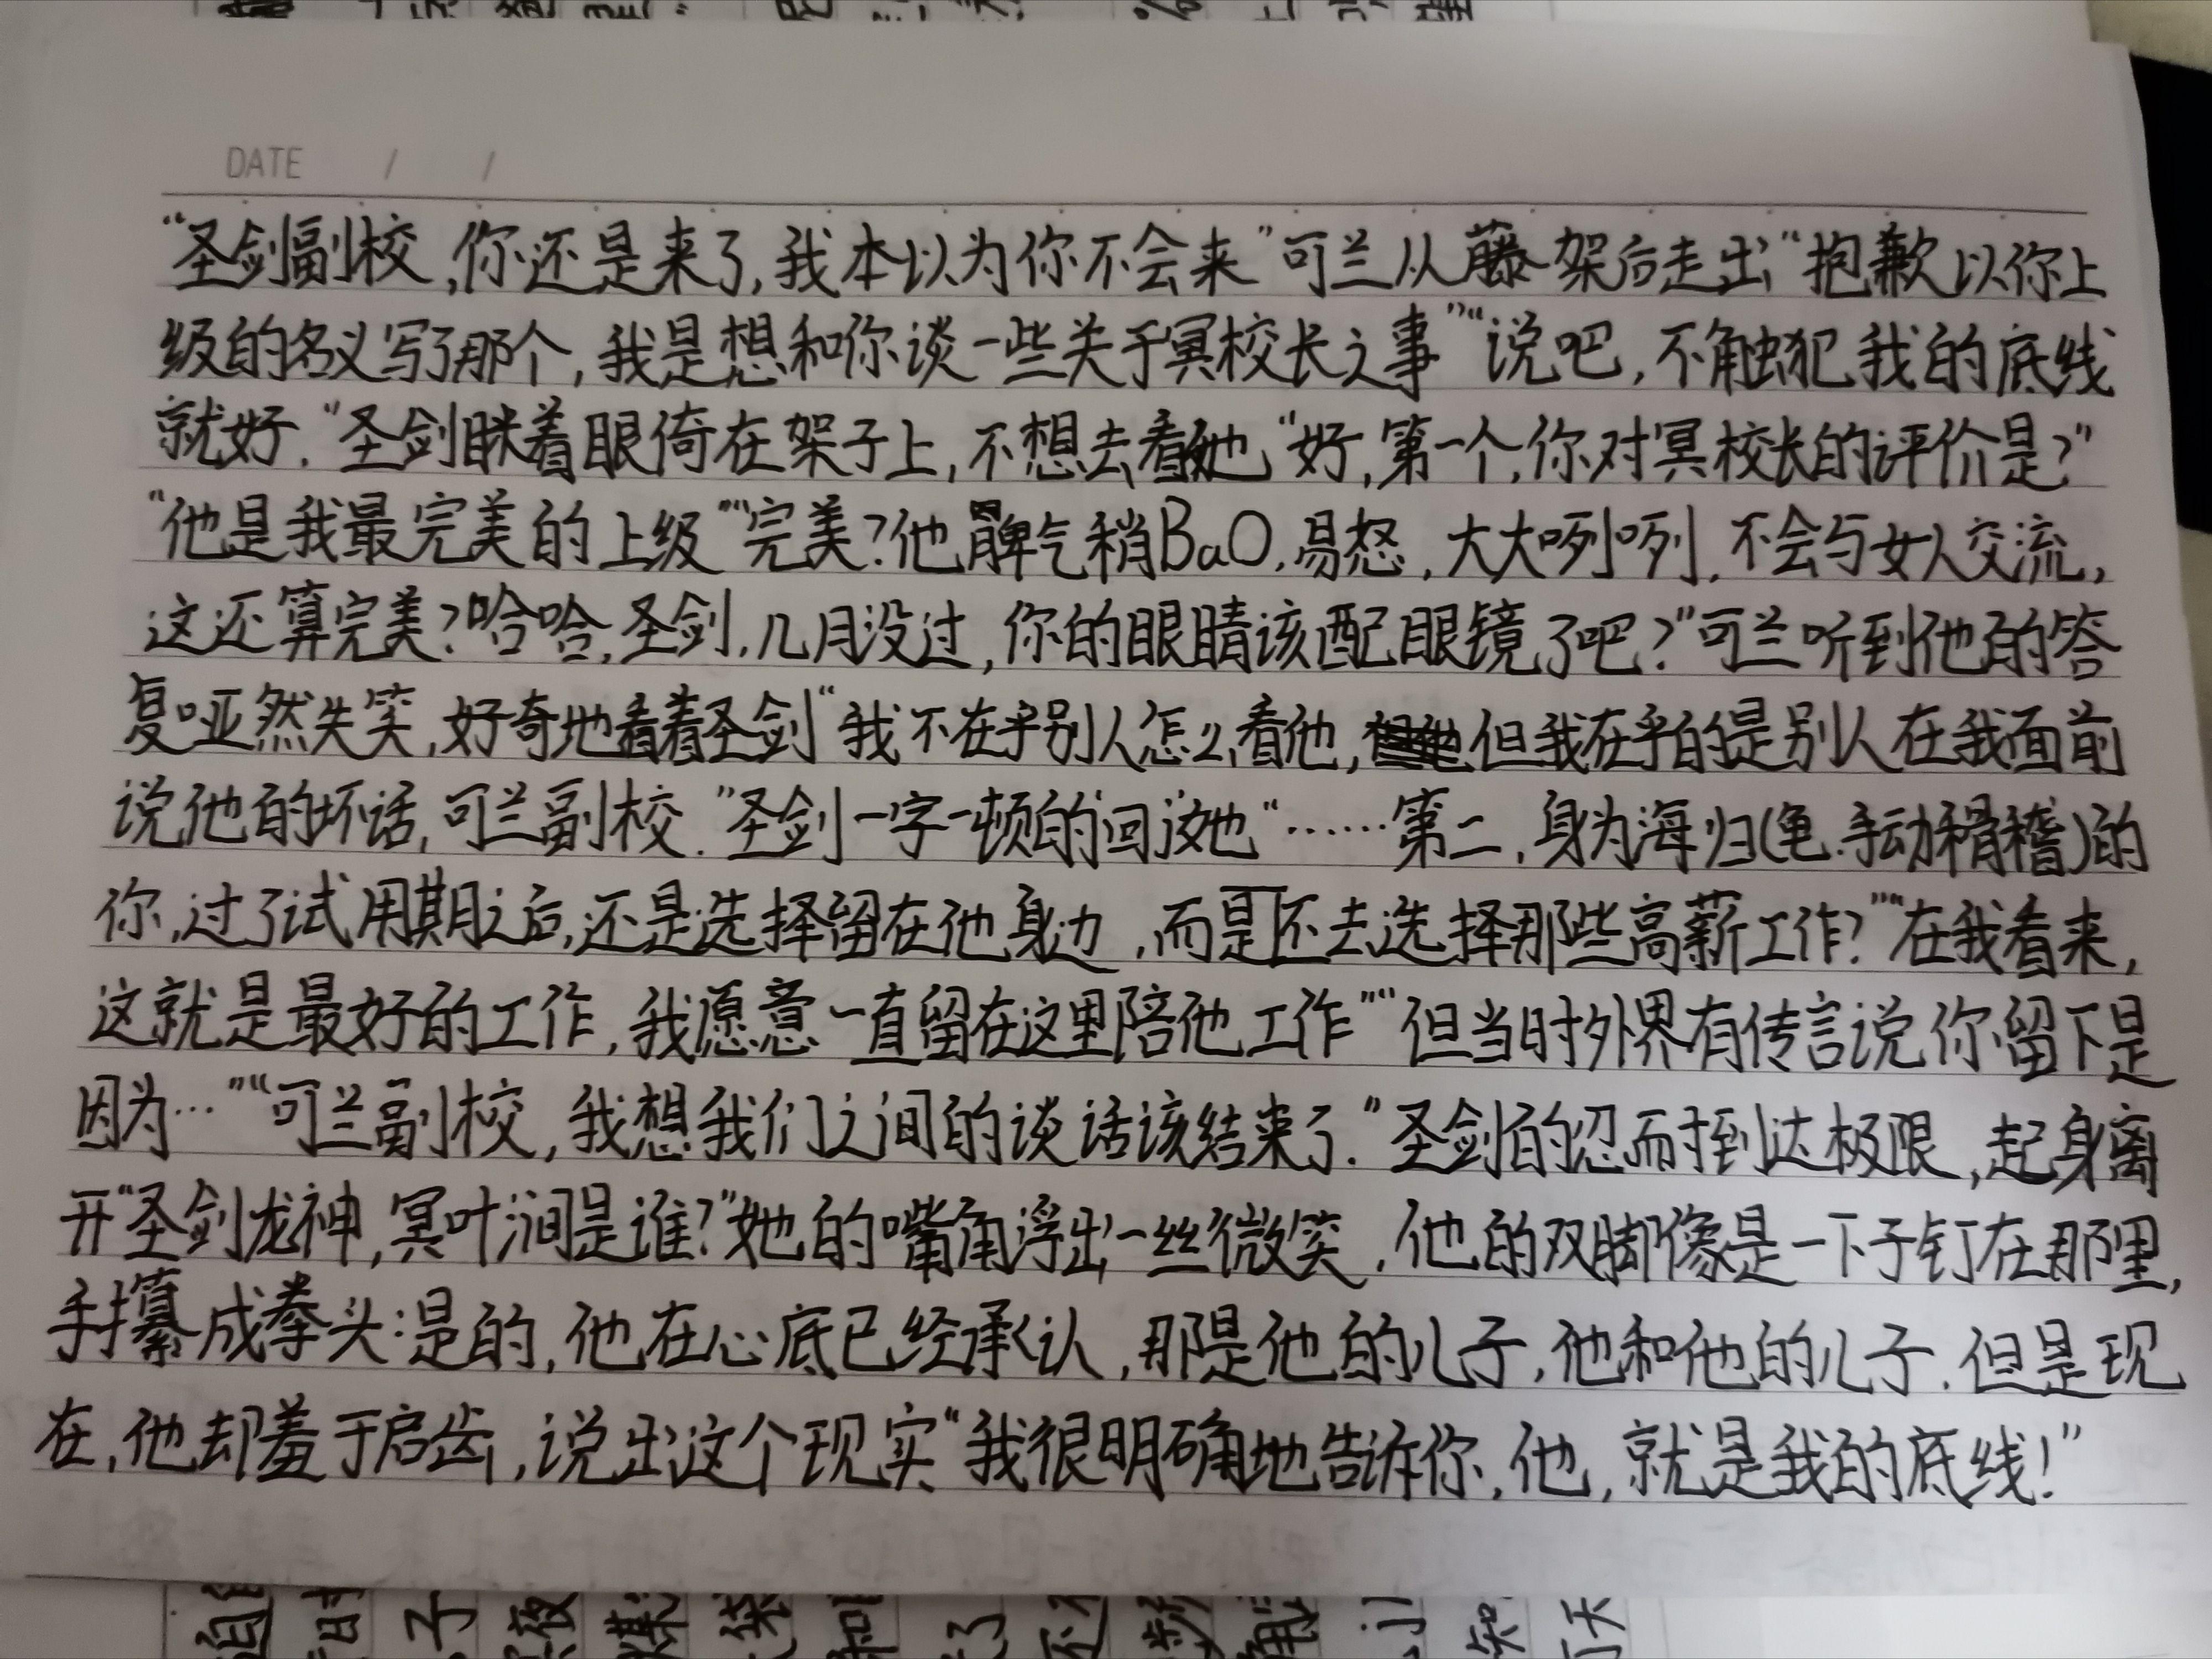 DATE / /
“圣剑副校,你还是来了,我本以为你不会来”可兰从藤架后走出“抱歉以你上
级的名义写了那个,我是想和你谈一些关于冥校长之事”“说吧,不触犯我的底线
就好.”圣剑眯着眼倚在架子上,不想去看她“好,第一个,你对冥校长的评价是?”
“他是我最完美的上级”“完美?他脾气稍BaO,易怒,大大咧咧,不会与女人交流,
这还算完美?哈哈,圣剑,几月没过,你的眼睛该配眼镜了吧?”可兰听到他的答
复哑然失笑,好奇地看着圣剑“我不在乎别人怎么看他,但我在乎的是别人在我面前
说他的坏话,可兰副校.”圣剑一字一顿的回这她“……第二,身为海归(龟.手动滑稽)的
你,过了试用期之后,还是选择留在他身边,而是不去选择那些高薪工作?”“在我看来,
这就是最好的工作,我愿意一直留在这里陪他工作”“但当时外界有传言说你留下是
因为…”“可兰副校,我想我们之间的谈话该结束了.”圣剑的忍耐到达极限,起身离
开“圣剑龙神,冥叶涧是谁?”她的嘴角浮出一丝微笑,他的双脚像是一下子钉在那里,
手攥成拳头:是的,他在心底已经承认,那是他的儿子,他和他的儿子.但是现
在,他却羞于启齿,说出这个现实“我很明确地告诉你,他,就是我的底线!”